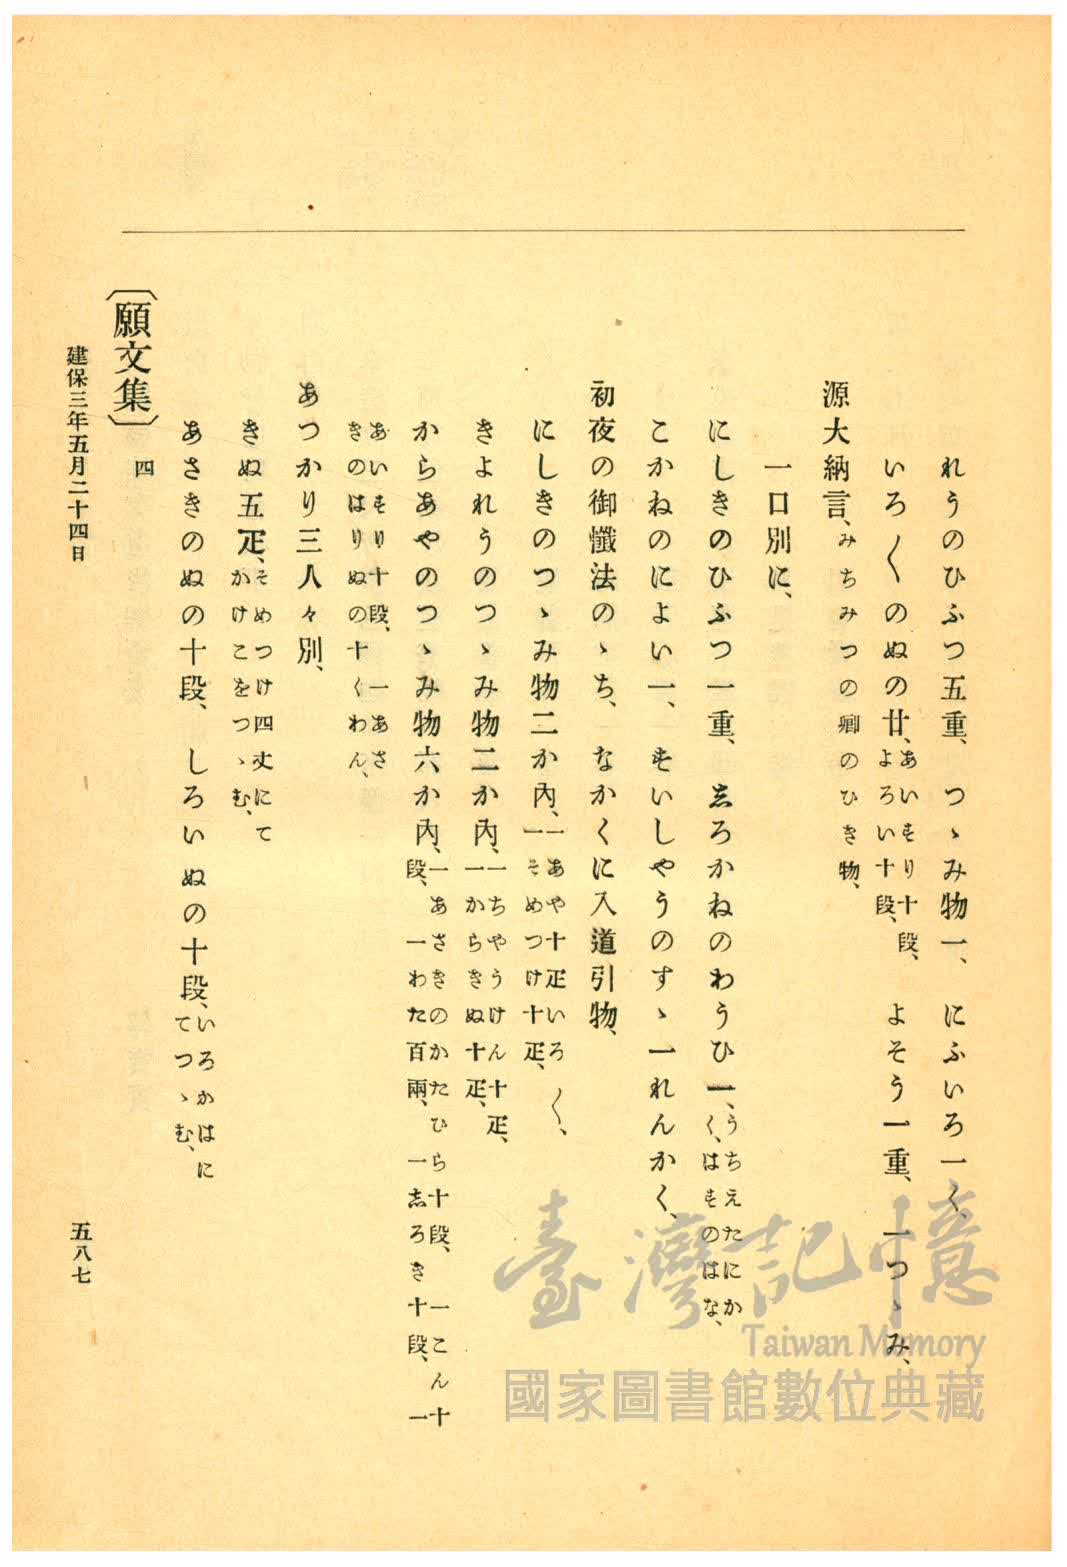 れうのひふつ五重、つゝみ物一、にふいろ一く、
いろ〱のぬの廿、あいすり十段、よろい十段、よそう一重、一つゝみ、
源大納言、みちみつの卿のひき物、
一口別に、
にしきのひふつ一重、志ろかねのわうひ一、うちえたにかく、はすのはな、
こかねのによい一、すいしやうのすゝ一れんかく、
初夜の御懺法のゝち、なかくに入道引物、
にしきのつゝみ物二か內、一あや十疋いろ〱、一そめつけ十疋、
きよれうのつゝみ物二か內、一ちやうけん十疋、一からきぬ十疋、
からあやのつゝみ物六か內、一あさきのかたひら十段、一こん十段、一わた百兩、一志ろき十段、一
あいすり十段、一あさきのはりぬの十くわん、
あつかり三人々別、
きぬ五疋、そめつけ四丈にてかけこをつゝむ、
あさきのぬの十段、しろいぬの十段、いろかはにてつゝむ、
〔願文集〕 四
建保三年五月二十四日
五八七
臺灣記憶
Taiwan Memory
國家圖書館數位典藏